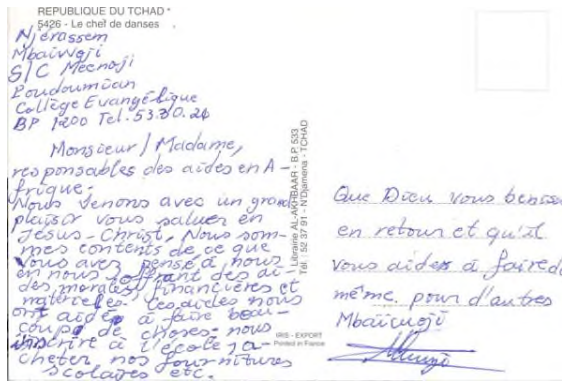 REPUBLIQUE DU TCHAD
5426 - Le chef de danses
Njerassem
Mbaïwoji
S/C Mecnoji
Poudoumian
Collège Evangélique
BP 1200 Tel. 53.30.24
Monsieur / Madame,
responsables des aides en A-
frique.
Nous venons avec un grand
plaisir vous saluer en
Jésus-Christ. Nous som-
mes contents de ce que
vous avez pensé à nous
en nous offrant des ai-
des morales, financières et
matérielles. Ces aides nous
ont aidés à faire beau-
coup de choses: nous
inscrire à l'école, a-
cheter nos fournitures
scolaires etc.
Librairie AL-AKHBAAR - B.P. 533
Tél. 52 37 91 - N'Djamena - TCHAD
IRIS - EXPORT
Printed in France
Que Dieu vous bénisse
en retour et qu'il
vous aider à faire de
même pour d'autres